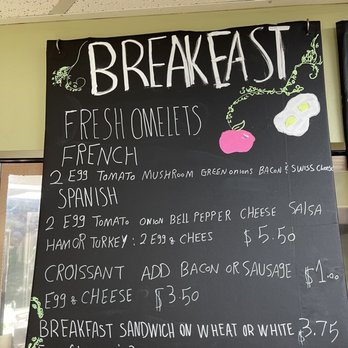 BREAKFAST
FRESH OMELETS
FRENCH
2 EGG TOMATO MUSHROOM GREEN ONIONS BACON & SWISS CHEESE
SPANISH
2 EGG TOMATO ONION BELL PEPPER CHEESE SALSA
HAM OR TURKEY: 2 EGG & CHEES $5.50
CROISSANT ADD BACON OR SAUSAGE $1.00
EGG & CHEESE $3.50
BREAKFAST SANDWICH ON WHEAT OR WHITE $3.75